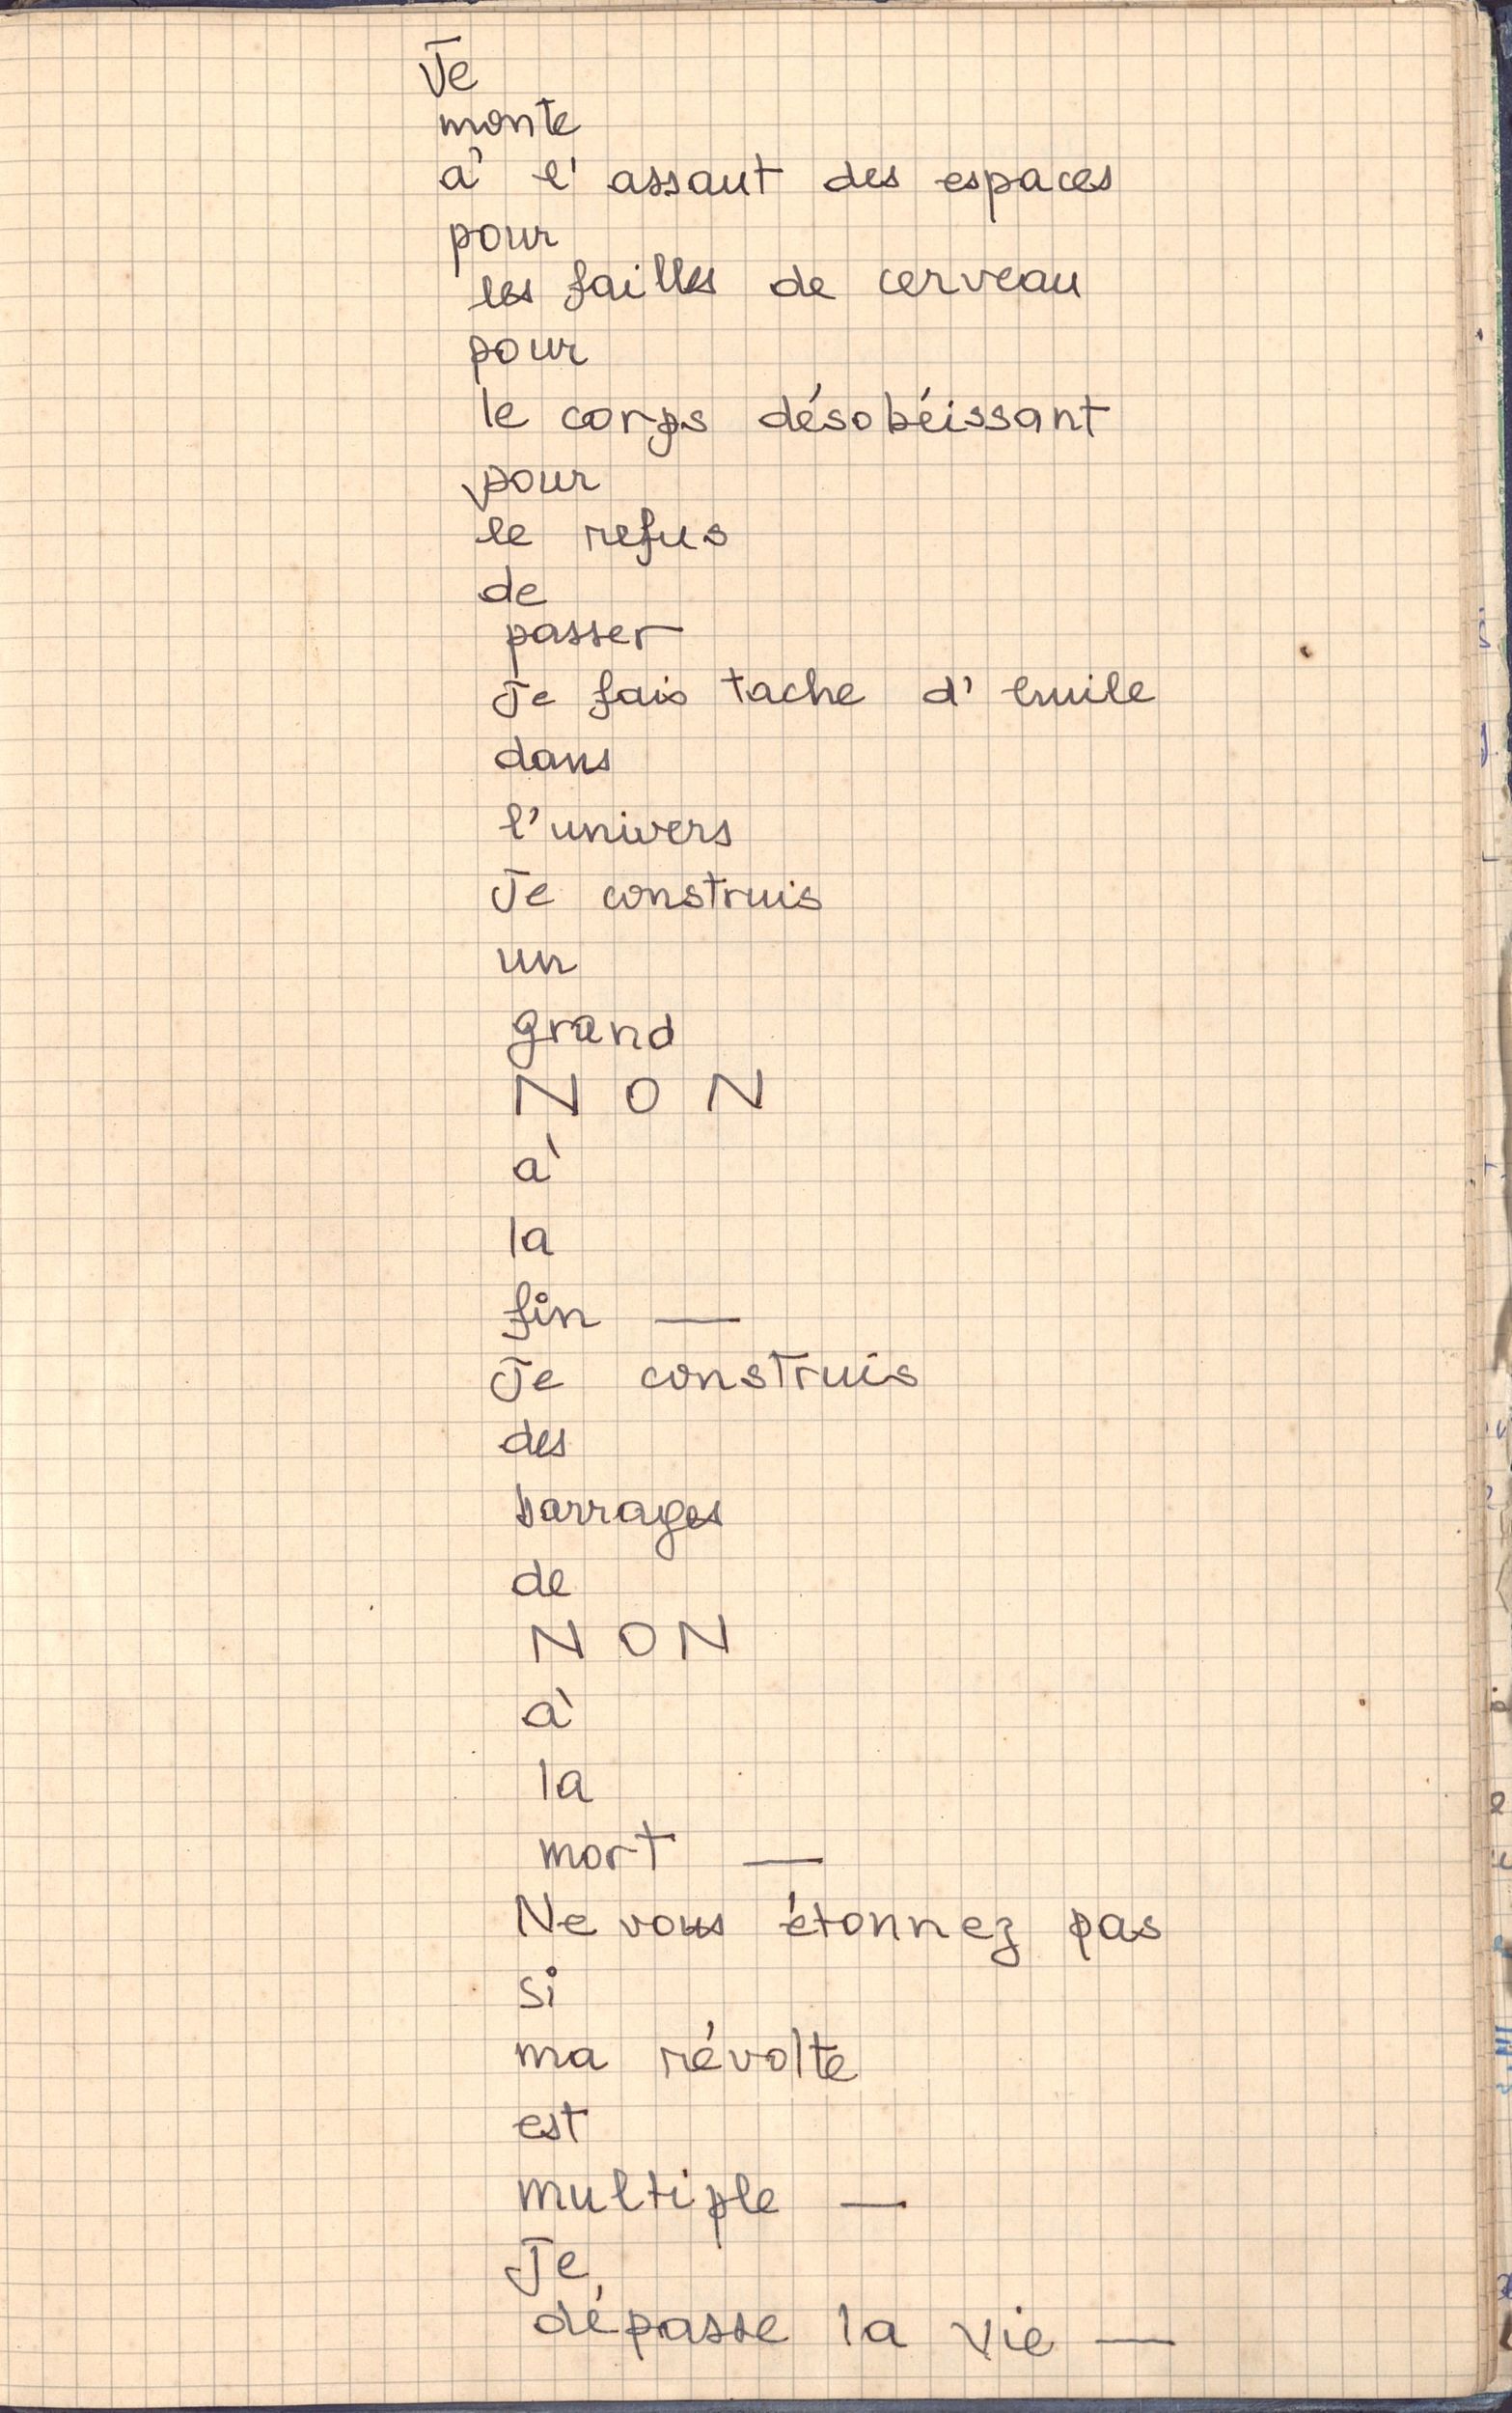 Je
monte
à l'assaut des espaces
pour
les failles de cerveau
pour
le corps désobéissant
pour
le refus
de
passer
Je fais tache d'huile
dans
l'univers
Je construis
un
grand
NON
à
la
fin —
Je construis
des
barrages
de
NON
à
la
mort —
Ne vous étonnez pas
si
ma révolte
est
multiple —
Je
dépasse la vie —